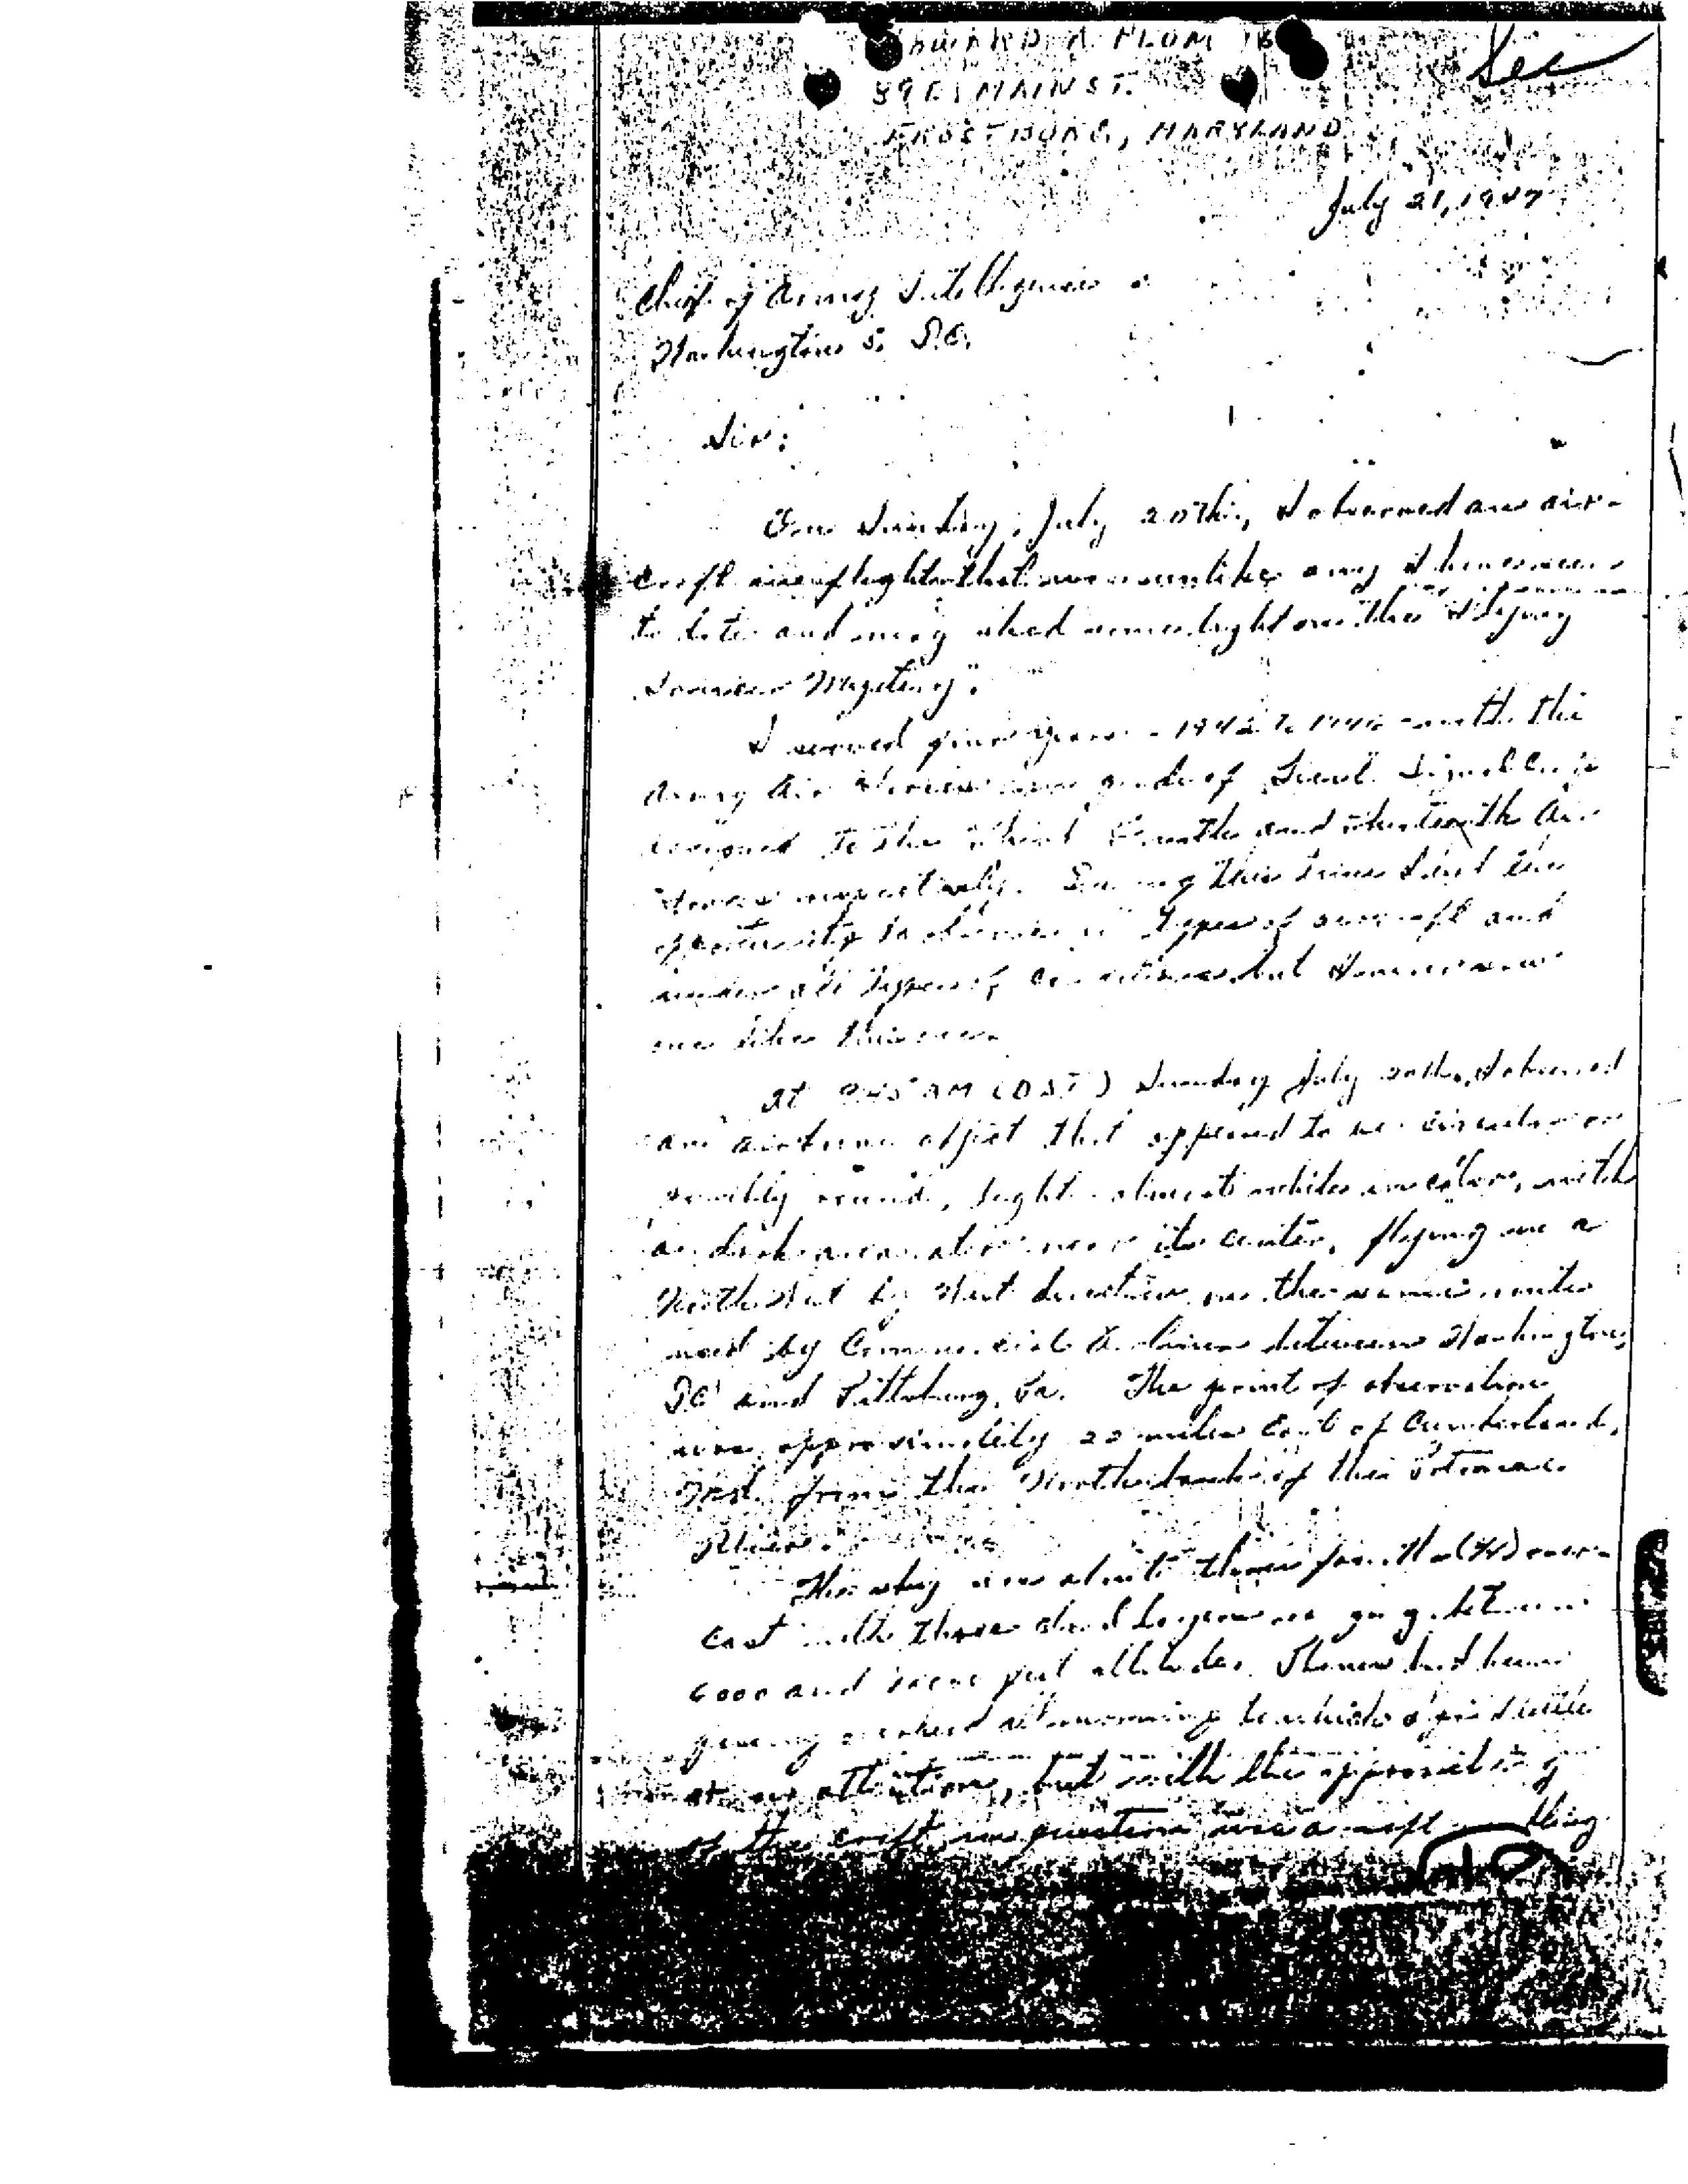 MAIN ST.
FROSTBURG, MARYLAND
See
July 21, 1947
Chief of Army Intelligence
Washington 5. D.C.
Sir:
On Sunday, July 20th, I observed an air-
craft in flight that was unlike any I have seen
to date and may shed some light on the "Flying
Saucer Mystery".
I served four years - 1942 to 1946 - with the
Army Air Forces
assigned to the Third Fourth and Thirteenth Air
Forces respectively. During this time I had the
opportunity to observe all types of aircraft and
under all types of conditions but
one like this one.
At AM (DST) Sunday July 20th, I observed
an airborne object that appeared to be circular or
possibly round, light almost white in color, with
a dark area at or near its center, flying in a
North West by West direction on the same route
used by Commercial Airlines between Washington,
D.C. and Pittsburg, Pa. The point of observation
was approximately 20 miles East of Cumberland,
Md. from the North bank of the Potomac
River.
The sky was about three fourths (3/4) over-
cast with three cloud layers between
6000 and feet altitudes. Planes had been
passing overhead all morning to which I paid little
or no attention, but with the approach
of the craft in question was a thing